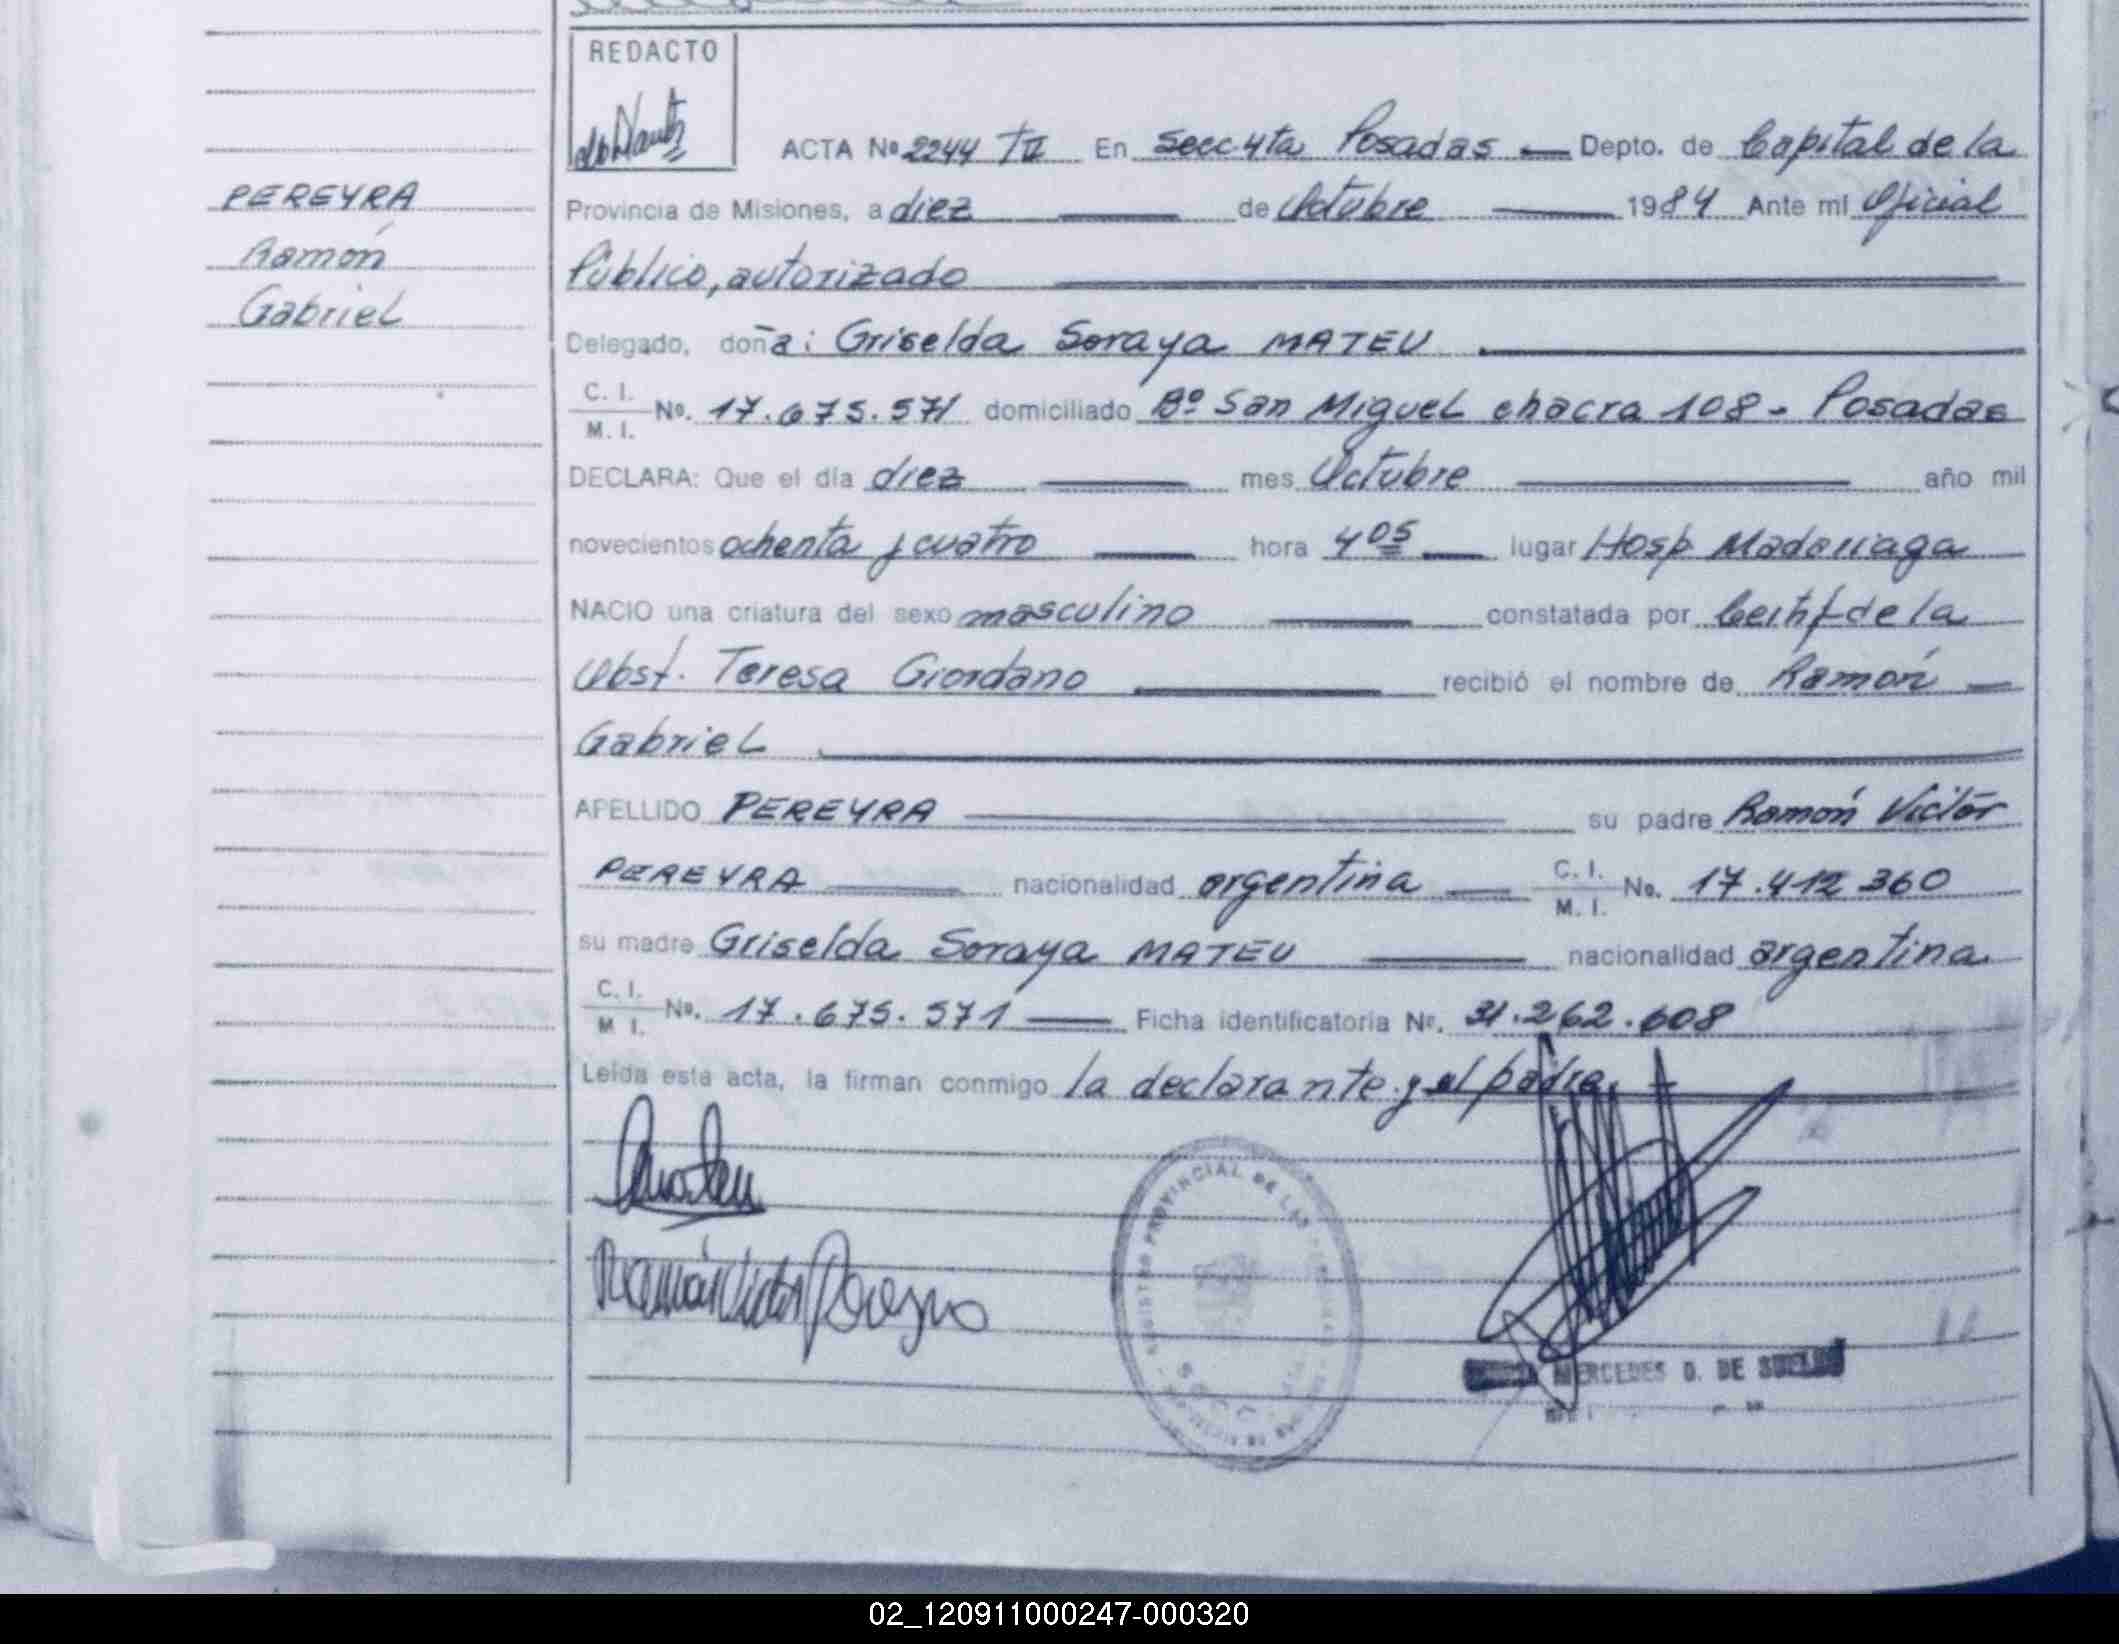 REDACTO
ACTA Nº 2244 TII En Secc 4ta Posadas — Depto. de Capital de la
PEREYRA
Ramón
Gabriel
Provincia de Misiones, a diez de Octubre 1984 Ante mí Oficial
Público, autorizado
Delegado, doña: Griselda Soraya MATEU
C. I.
M. I. Nº. 17.675.571 domiciliado Bº San Miguel chacra 108 - Posadas
DECLARA: Que el día diez mes Octubre año mil
novecientos ochenta y cuatro hora 4 05 lugar Hosp Madariaga
NACIO una criatura del sexo masculino constatada por Certif de la
Obst. Teresa Giordano recibió el nombre de Ramón
Gabriel
APELLIDO PEREYRA su padre Ramón Victor
PEREYRA nacionalidad argentina C. I.
M. I. Nº. 17.412 360
su madre Griselda Soraya MATEU nacionalidad argentina
C. I.
M. I. Nº. 17.675.571 Ficha identificatoria Nº. 31.262.608
Leída esta acta, la firman conmigo la declarante y el padre
Ramón Victor Pereyra
REGISTRO PROVINCIAL DE LAS
MERCEDES D. DE
02_120911000247-000320